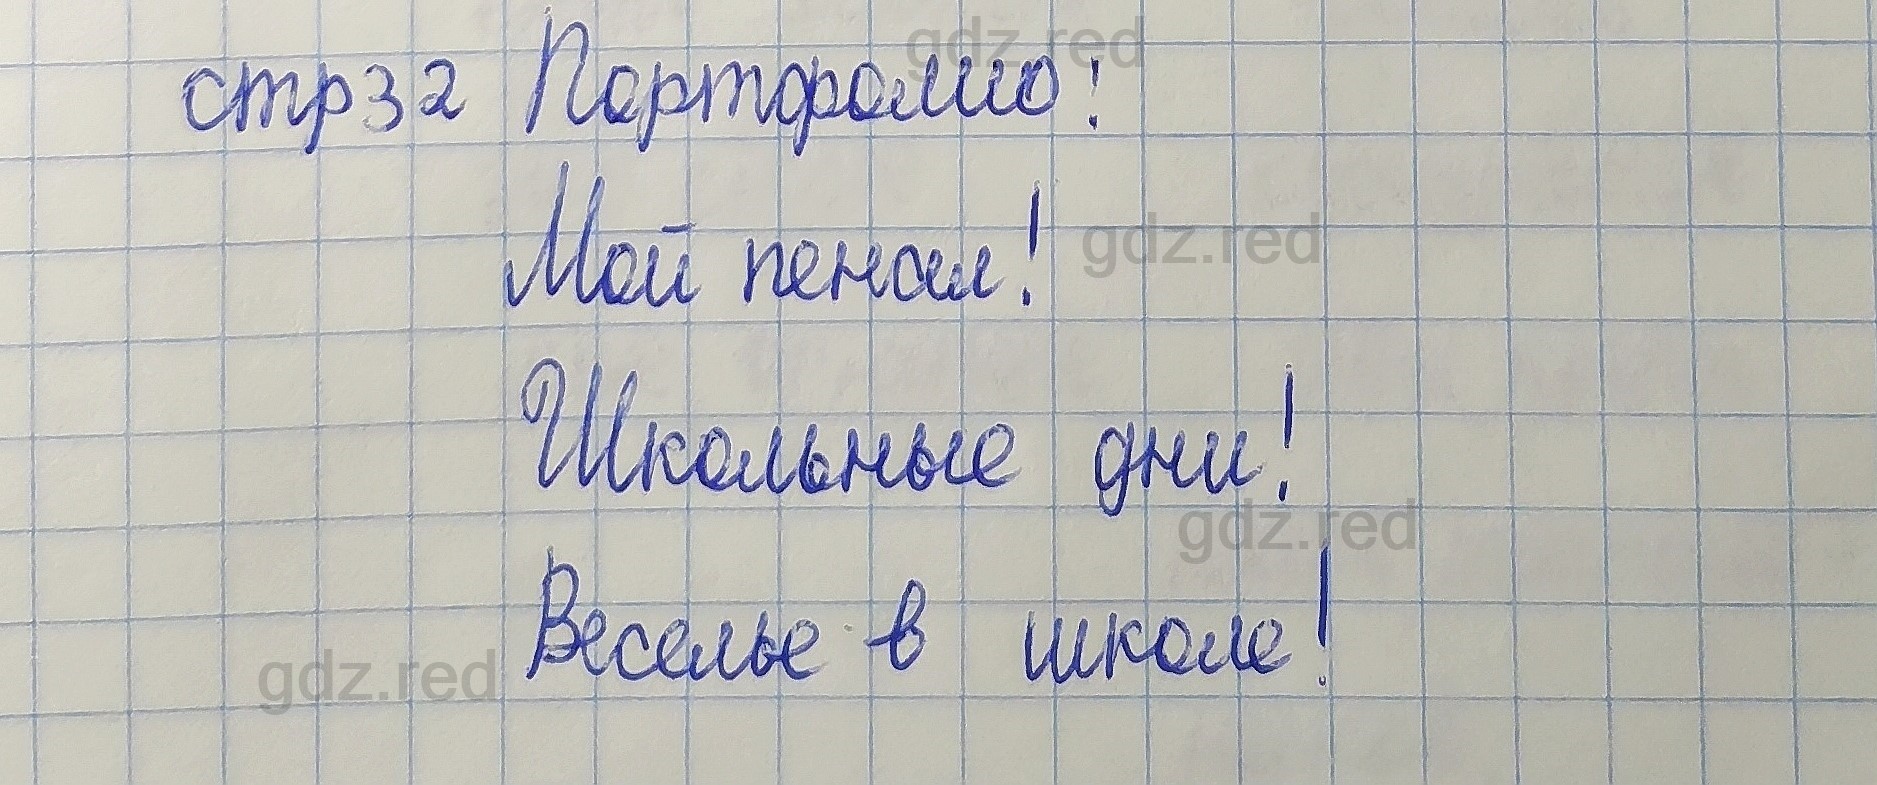 gdz.red
стр32 Портфолио!
Мой пенал!
gdz.red
Школьные дни!
gdz.red
Веселье в школе!
gdz.red